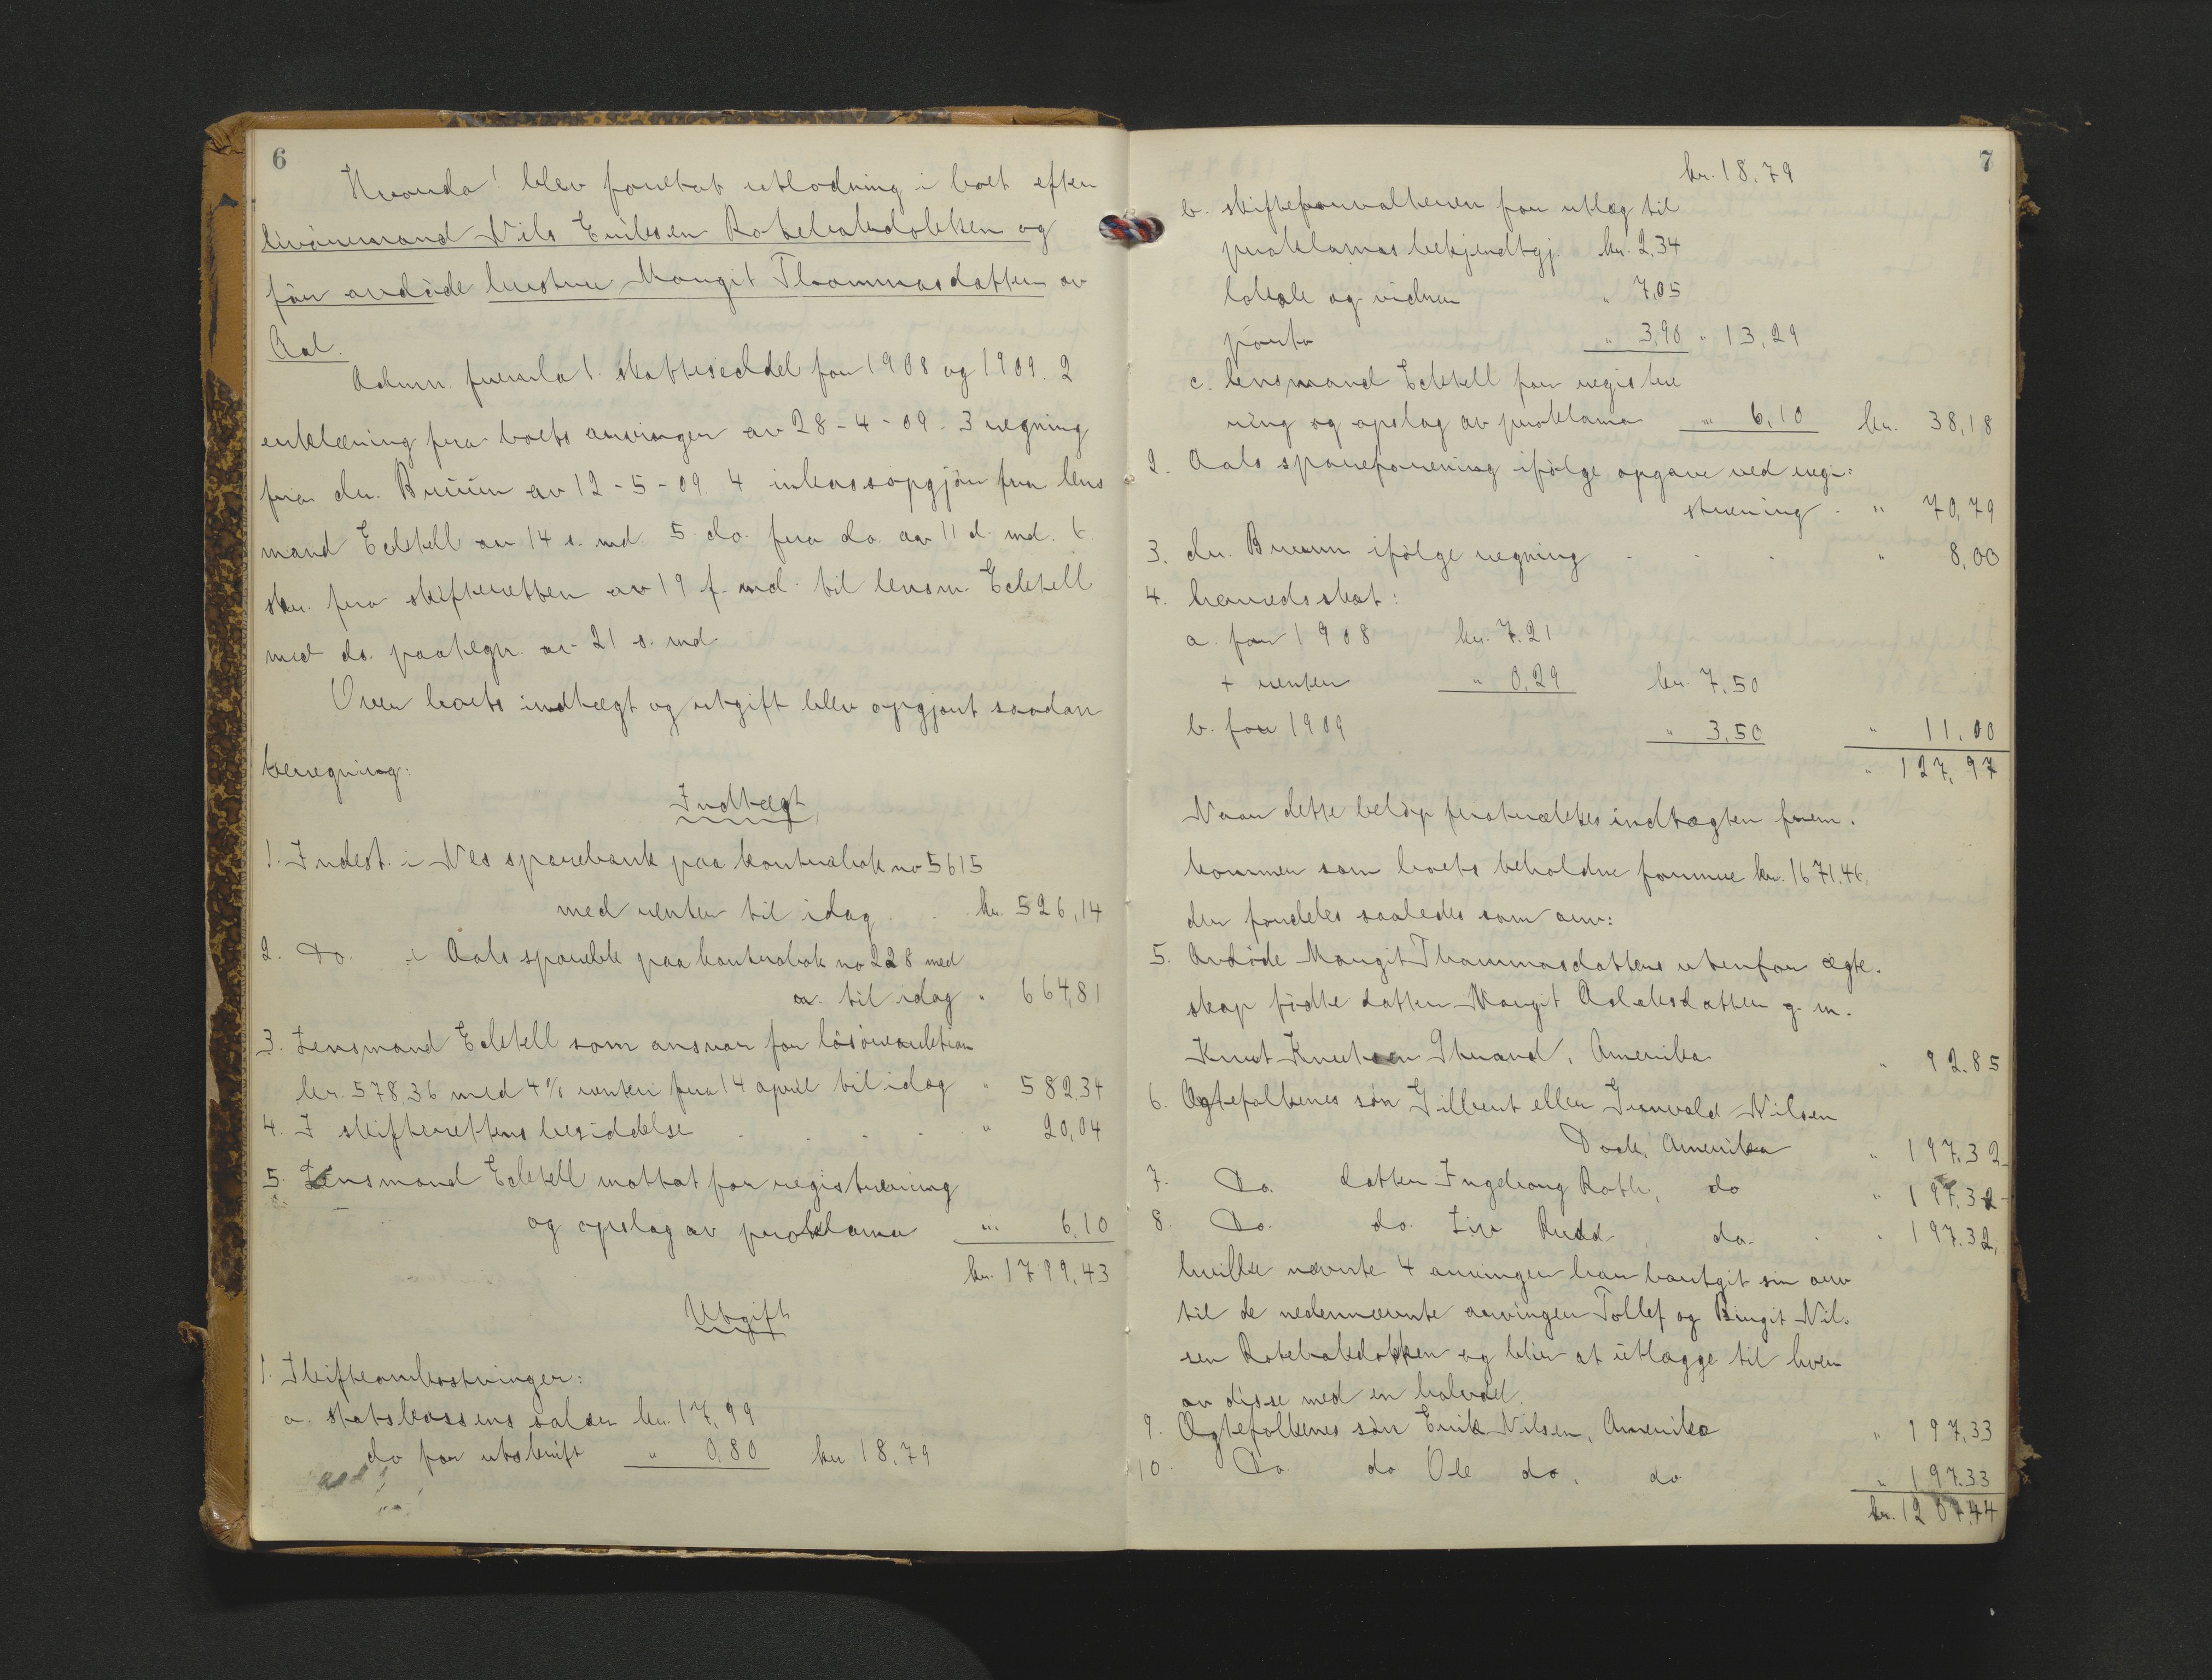 6
Hvorda! blev foretat utlodning i boet efter
livöremand Nils Eriksen Rotebakdokken og
för avdöde hustru Margit Thommasdatter av
Aal.
Adm. fremla 1. skatteseddel for 1908 og 1909. 2
erklæring fra boets arvinger av 28-4-09. 3 regning
fra dr. Bruun av 12-5-09. 4 inkassoopgjör fra lens
mand Eckell av 14 s. md. 5. do. fra do. av 11 d. md. 6
skr. fra skifteretten av 19 f. md. til lensm. Eckell
med ds. paategn. av 21 s. md
Over boets indtægt og utgift blev opgjort saadan
beregning:
Indtægt
1. Indest. i Nes sparebank paa kontrabok no 5615
med renter til idag . . kr. 526,14
2. Do. i Aals sparebk paa kontrabok no 228 med
r. til idag " 664,81
3. Lensmand Eckell som ansvar for lösöreauktion
kr. 578,36 med 4% renter fra 14 april til idag " 582,34
4. I skifterettens besiddelse . . . . " 20,04
5. Lensmand Eckell mottat for registrering
og opslag av proklama " 6,10
kr. 1799,43
Utgift
1. Skifteomkostninger:
a. statskassens salær kr. 17,99
do for utskrift " 0,80 kr 18,79
7
kr. 18,79
b. skifteforvalteren for utlæg til
proklamas bekjendtgj. kr. 2,34
lokale og vidner " 7,05
porto " 3,90 " 13,29
c. lensmand Eckell for registre
ring og opslag av proklama " 6,10 kr. 38,18
2. Aals spareforening ifölge opgave ved regi-
strering . " 70,79
3. dr. Bruun ifölge regning . . . " 8,00
4. herredsskat:
a. for 1908 kr. 7.21
+ renter " 0,29 kr. 7,50
b. for 1909 " 3,50 " 11,00
" 127,97
Naar dette belöp fratrækkes indtægten frem-
kommer som boets beholdne formue kr. 1671.46,
der fordeles saaledes som arv:
5. Avdöde Margit Thommasdatters utenfor ægte-
skap födte datter Margit Aslaksdatter g. m.
Knut Knutsen Strand, Amerika " 92.85
6. Ægtefolkenes sön Gilbert eller Gunvald Nilsen
Dock, Amerika " 197.32
7. Do. datter Ingeborg Roth, do " 197.32
8. Do. do. Liv Rudd, do. . " 197.32,
hvilke nævnte 4 arvinger har bortgit sin arv
til de nedennævnte arvinger Tollef og Birgit Nil-
sen Rotebakdokken og blir at utlægge til hver
av disse med en halvdel.
9. Ægtefolkenes sön Erik Nilsen, Amerika " 197,33
10. Do do Ole do, do " 197.33
kr. 1207,44